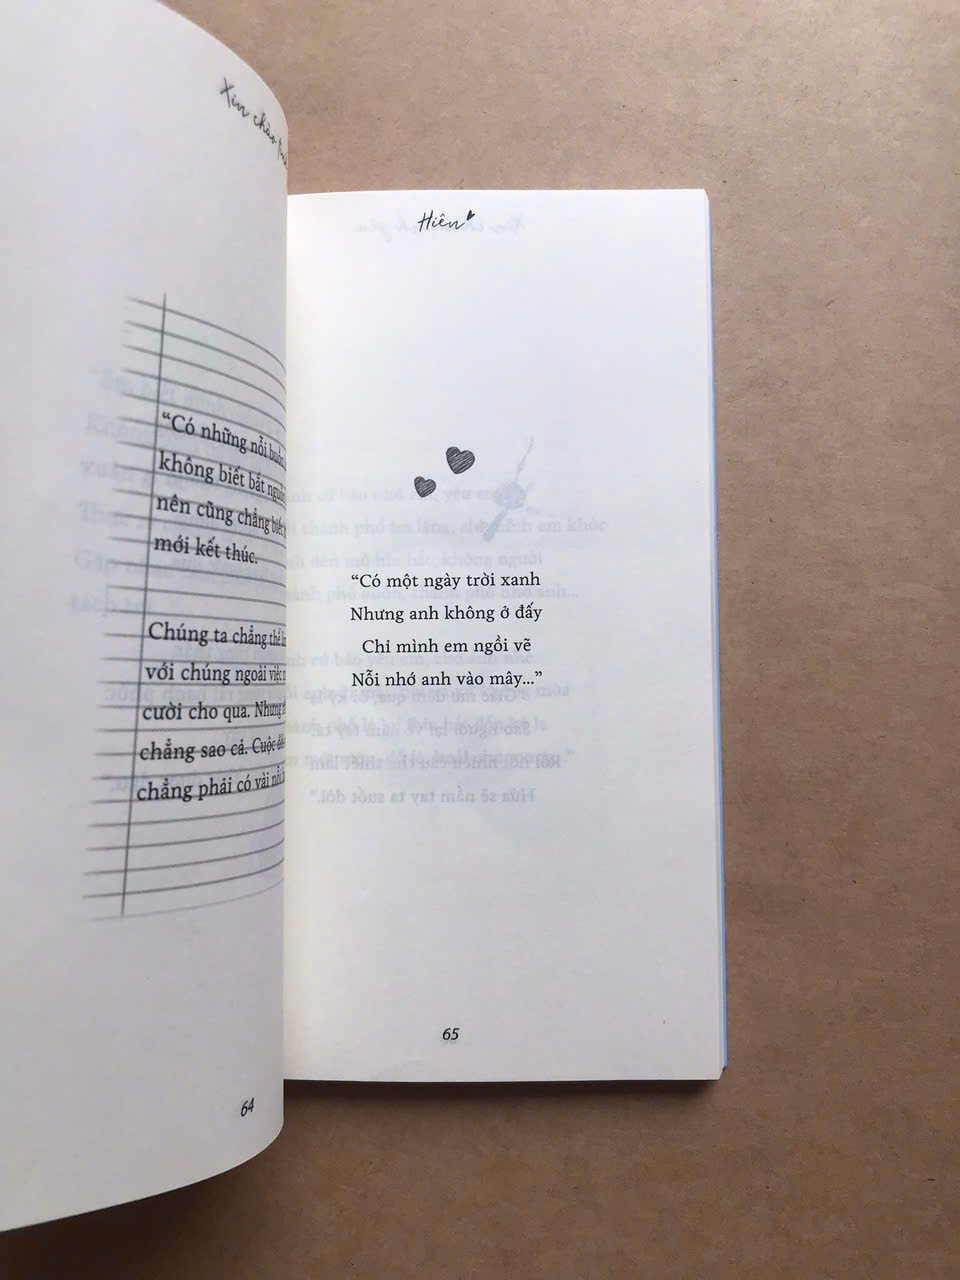 Xin chào
"Có những nỗi buồn
không biết bắt nguồn
nên cũng chẳng biết
mới kết thúc.
Chúng ta chẳng thể
với chúng ngoài việc
cười cho qua. Nhưng
chẳng sao cả. Cuộc
chẳng phải có vài nỗi
64
Hiên
“Có một ngày trời xanh
Nhưng anh không ở đấy
Chỉ mình em ngồi vẽ
Nỗi nhớ anh vào mây...”
65